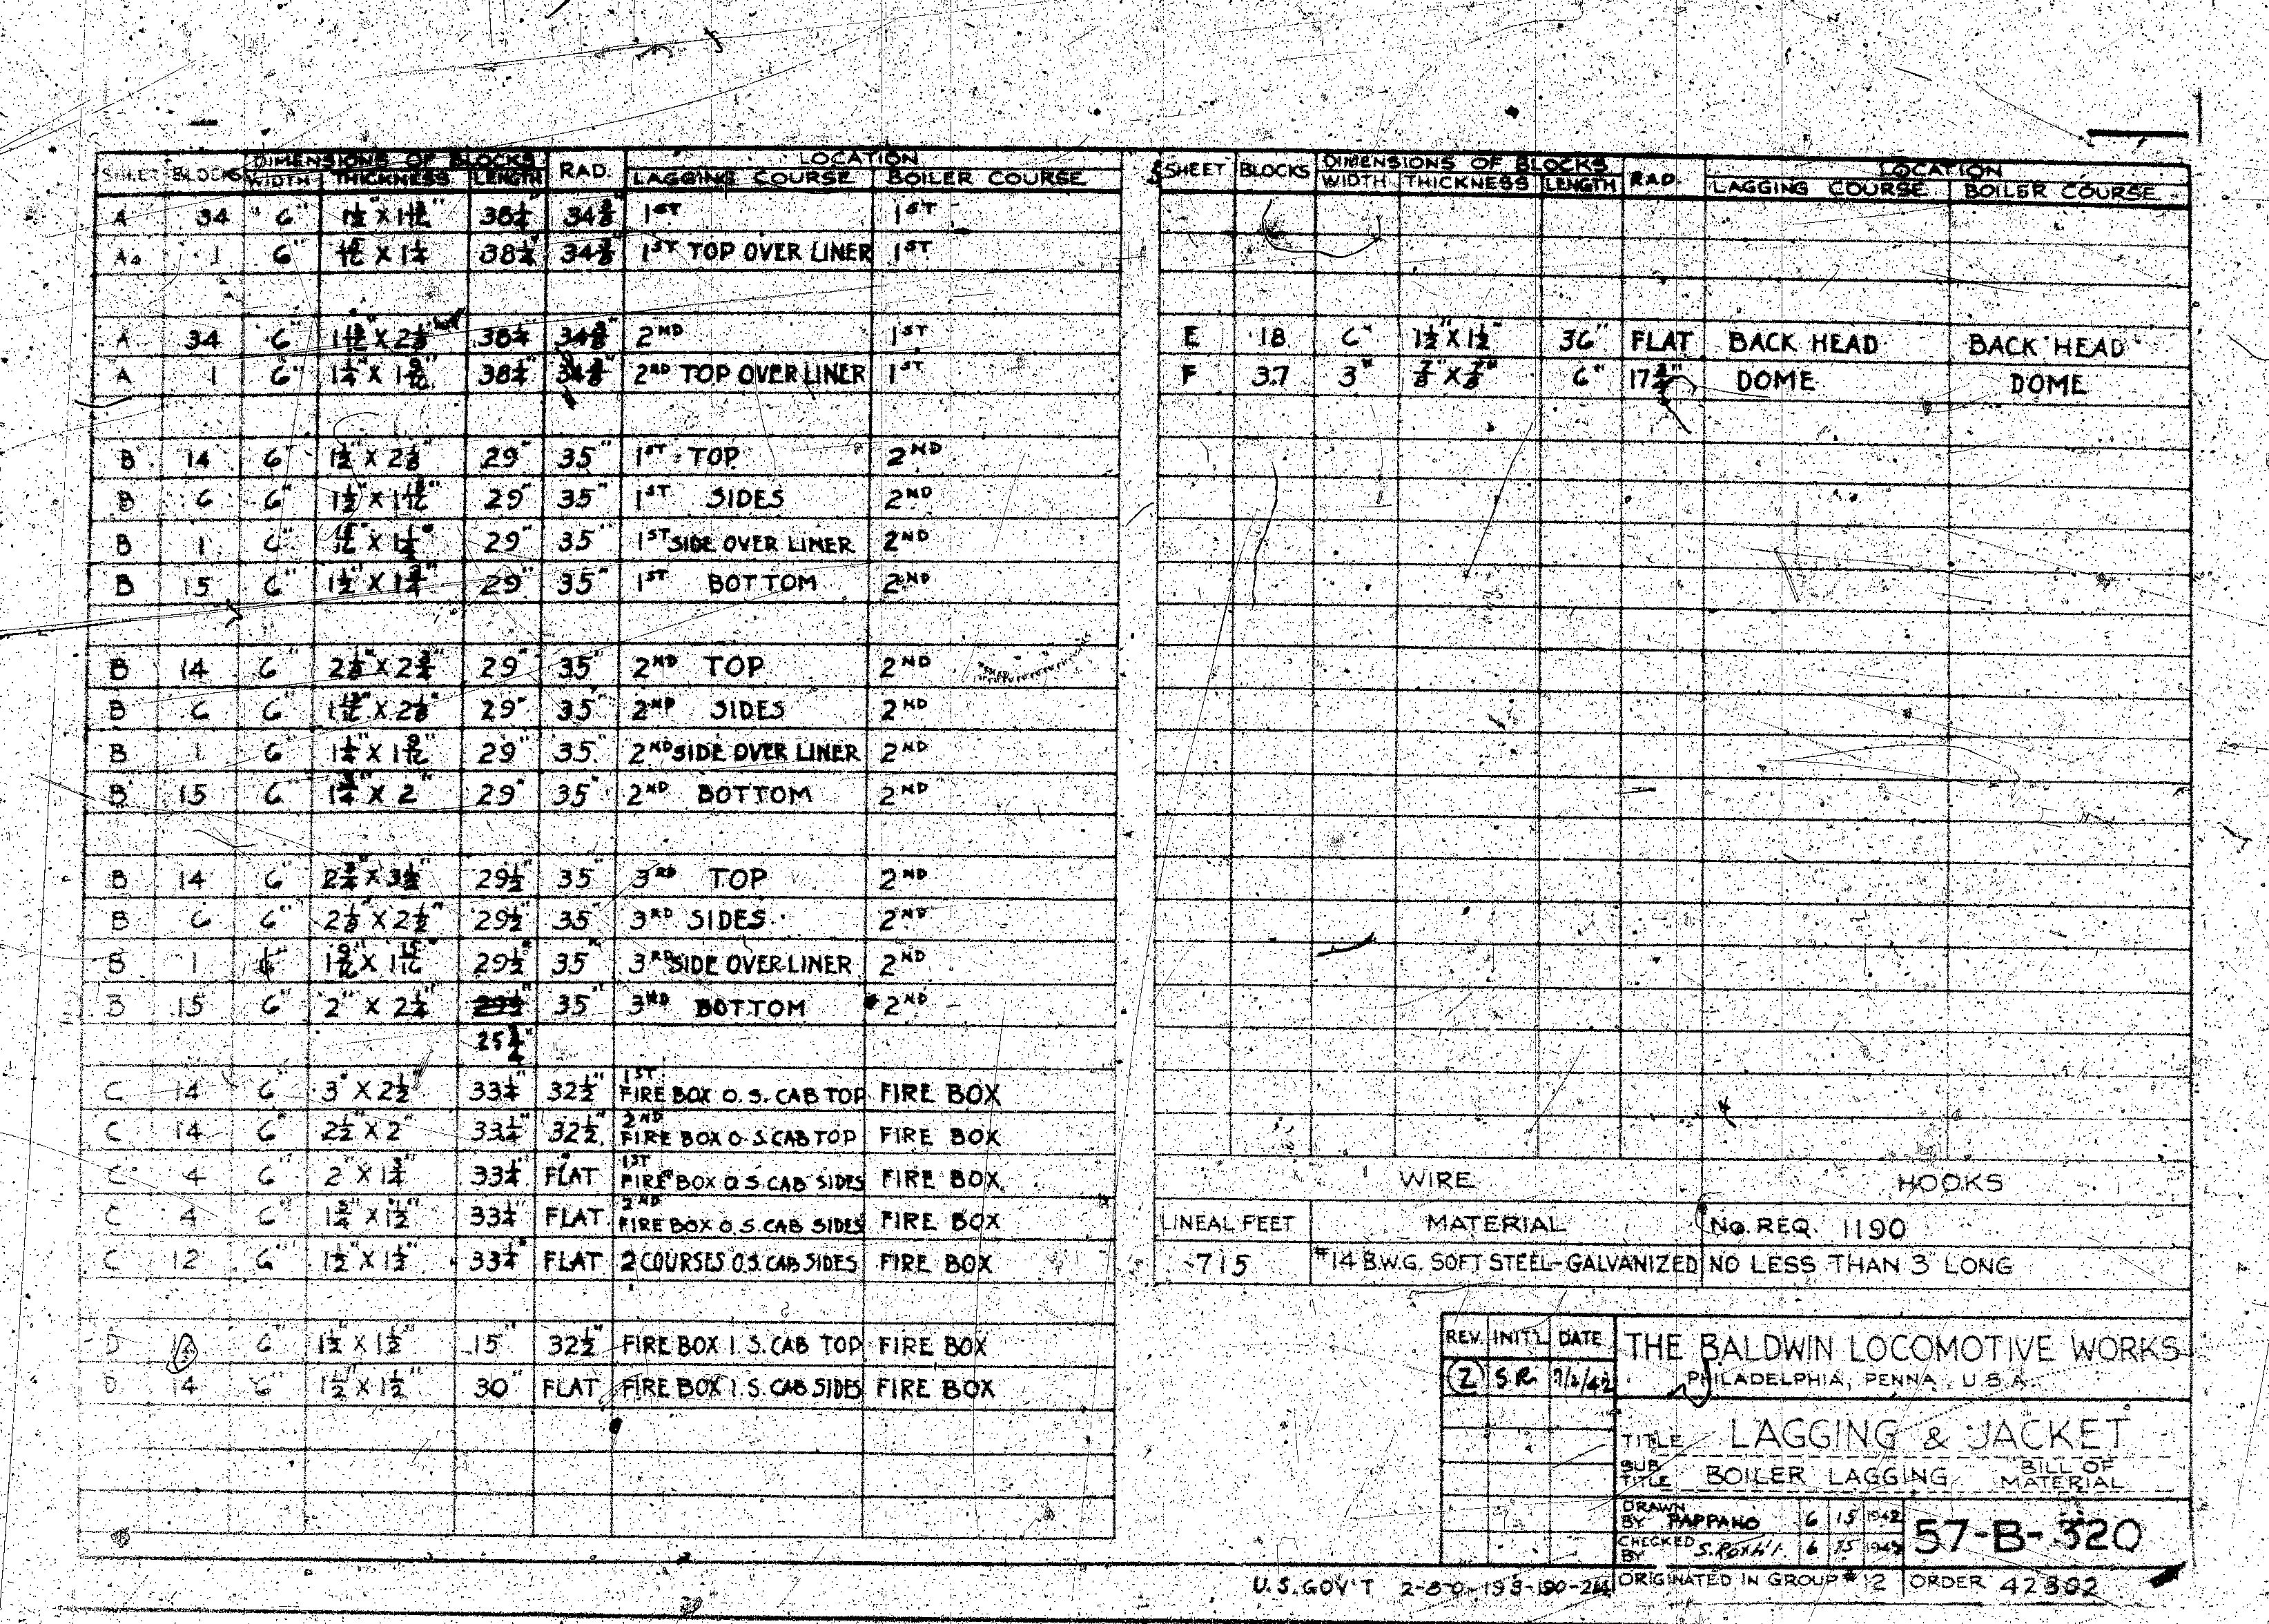 DIMENSIONS OF BLOCKS LOCATION
BLOCKS WIDTH THICKNESS LENGTH RAD. LAGGING COURSE BOILER COURSE
A 34 6" 38¼" 1ST 1ST
1 6" 38¼" 1ST TOP OVER LINER 1ST
A 34 6" 38¼" 2ND 1ST
A 1 6" 38¼" 2ND TOP OVER LINER 1ST
B 14 6" 1½" X 2⅛" 29" 35" 1ST TOP 2ND
B 6 6" 29" 35" 1ST SIDES 2ND
B 1 6" 29" 35" 1ST SIDE OVER LINER 2ND
B 15 6" 1½" X 1¾" 29" 35" 1ST BOTTOM 2ND
B 14 6" 2⅛" X 2¾" 29" 35" 2ND TOP 2ND
B 6 6" 29" 35" 2ND SIDES 2ND
B 1 6" 1¼" X 1 9/16" 29" 35" 2ND SIDE OVER LINER 2ND
B 15 6" 1¾" X 2" 29" 35" 2ND BOTTOM 2ND
B 14 6" 29½" 35" 3RD TOP 2ND
B 6 6" 2⅛" X 2½" 29½" 35" 3RD SIDES 2ND
B 1 6" 1 9/16" X 1 15/16" 29½" 35" 3RD SIDE OVER LINER 2ND
B 15 6" 2" X 2¼" 29½" 35" 3RD BOTTOM 2ND
25¾"
C 14 6" 3" X 2½" 33¼" 32½" 1ST FIRE BOX O.S. CAB TOP FIRE BOX
C 14 6" 2½" X 2" 33¼" 32½" 2ND FIRE BOX O.S. CAB TOP FIRE BOX
C 4 6" 2" X 1¾" 33¼" FLAT 1ST FIRE BOX O.S. CAB SIDES FIRE BOX
C 4 6" 1¾" X 1½" 33¼" FLAT 2ND FIRE BOX O.S. CAB SIDES FIRE BOX
C 12 6" 1½" X 1½" 33¼" FLAT 2 COURSES O.S. CAB SIDES FIRE BOX
D 6" 1½" X 1½" 15" 32½" FIRE BOX I.S. CAB TOP FIRE BOX
D 14 6" 1½" X 1½" 30" FLAT FIRE BOX I.S. CAB SIDES FIRE BOX
DIMENSIONS OF BLOCKS LOCATION
SHEET BLOCKS WIDTH THICKNESS LENGTH RAD. LAGGING COURSE BOILER COURSE
E 18 6" 1½" X 1½" 36" FLAT BACK HEAD BACK HEAD
F 37 3" ⅞" X ⅞" 6" DOME DOME
WIRE HOOKS
LINEAL FEET MATERIAL No. REQ. 1190
715 #14 B.W.G. SOFT STEEL-GALVANIZED NO LESS THAN 3 LONG
REV. INIT'L DATE
2 S.R. 7/2/42
THE BALDWIN LOCOMOTIVE WORKS
PHILADELPHIA, PENNA., U.S.A.
TITLE LAGGING & JACKET
SUB TITLE BOILER LAGGING BILL OF MATERIAL
DRAWN BY PAPPANO 6 15 1942
CHECKED BY 6 15 1942
57-B-320
U.S. GOV'T ORIGINATED IN GROUP #12 ORDER